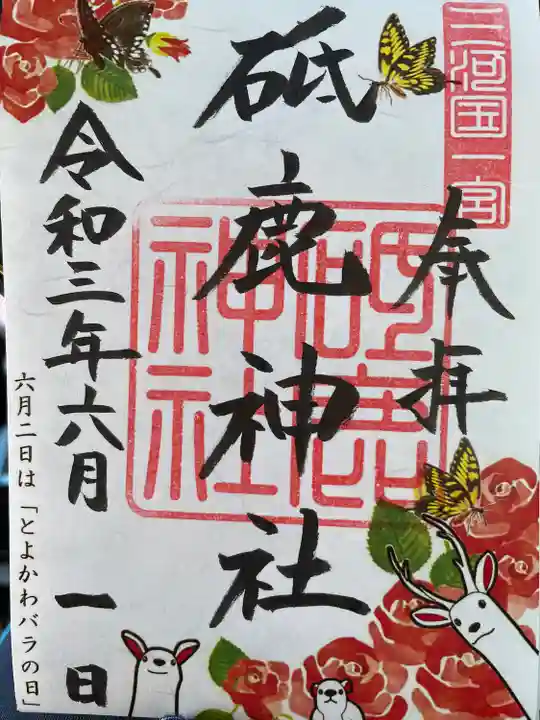 三河国一宮
奉拝
砥鹿神社
砥鹿
神社
令和三年六月一日
六月二日は「とよかわバラの日」